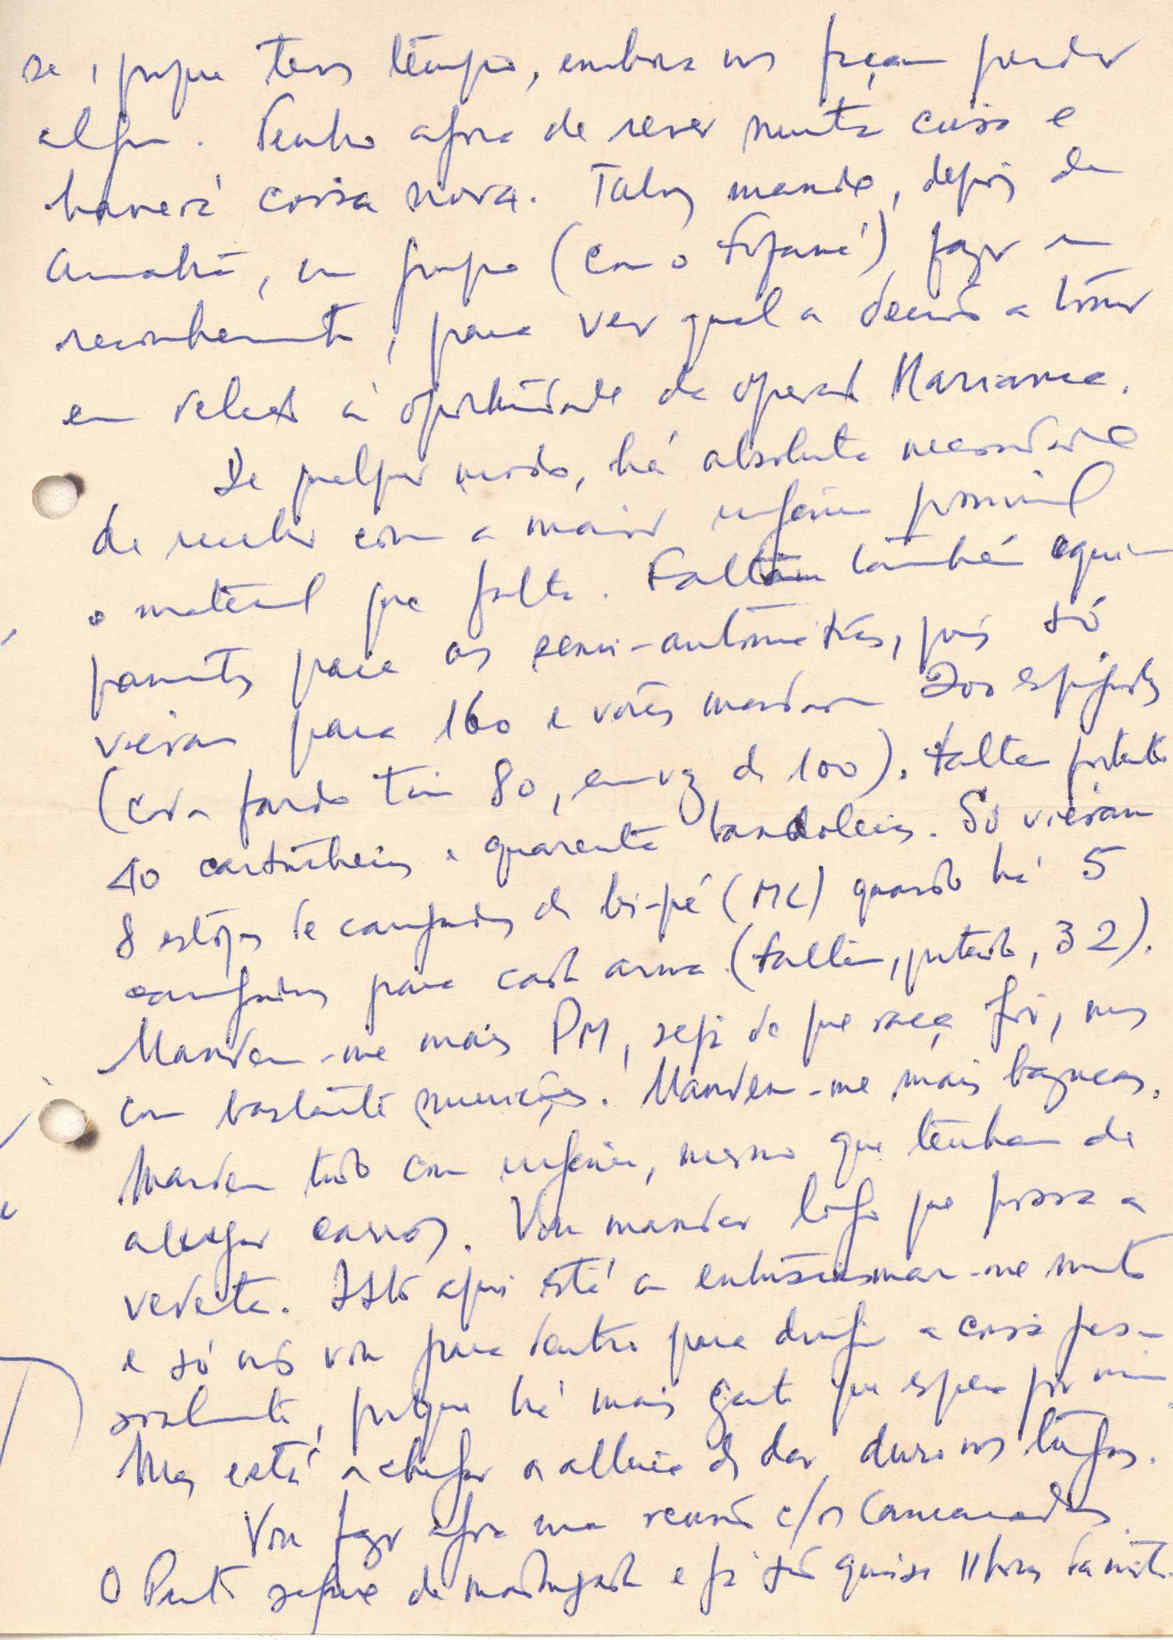 se, porque temos tempo, embora nos façam perder
algum. Tenho agora de rever muita coisa e
haverá coisa nova. Talvez mande, depois de
amanhã, um grupo (com o Fofaná) fazer um
reconhecimento, para ver qual a decisão a tomar
em relação à oportunidade da operação Marianne.
De qualquer modo, há absoluta necessidade
de receber com a maior urgência possível
o material que falta. Faltam também equi-
pamentos para as semi-automáticas, pois só
vieram para 160 e vocês mandaram 200 espingardas
(cada fardo tem 80, em vez de 100). Faltam portanto
40 cartucheiras e quarenta bandoleiras. Só vieram
8 estojos de carregadores de bi-pé (ML) quando há 5
carregadores para cada arma (faltam, portanto, 32).
Mandem-me mais PM, seja de que raça for, mas
com bastante munições. Mandem-me mais bazucas.
Mandem tudo com urgência, mesmo que tenham de
alugar carros. Vou mandar logo que possa a
vedeta. Isto aqui está a entusiasmar-me muito
e só não vou para dentro para dirigir a coisa pes-
soalmente, porque há mais gente que espera por mim
Mas está a chegar a altura de dar duro nos tugas.
Vou fazer agora uma reunião c/os camaradas.
O segue de madrugada e já são quase 11 horas da noite.